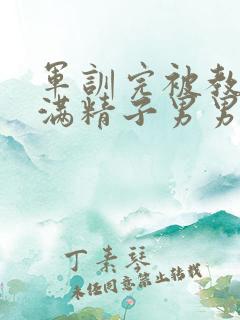 軍訓完被教
滿精子男男
丁素琴
未经同意禁止转载